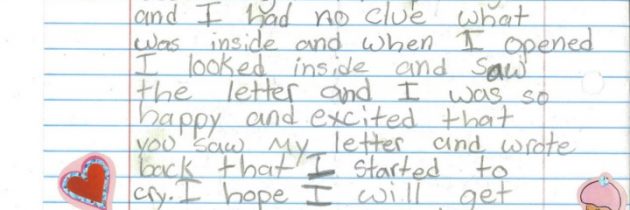 and I had no clue what
was inside and when I opened
I looked inside and saw
the letter and I was so
happy and excited that
you saw my letter and wrote
back that I started to
cry. I hope I will get